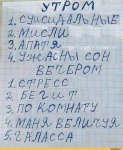 УТРОМ
1. СУИСИДАЛЬНЫЕ
2. МЫСЛИ
3. АПАТЯ
4. УЖАСНЫ СОН
ВЕЧЕРОМ
1. СТРЕСС
2. БЕГИТ
3. ПО КОМНАТУ
4. МАНЯ ВЕЛИЧУЯ
5. ГАЛАССА